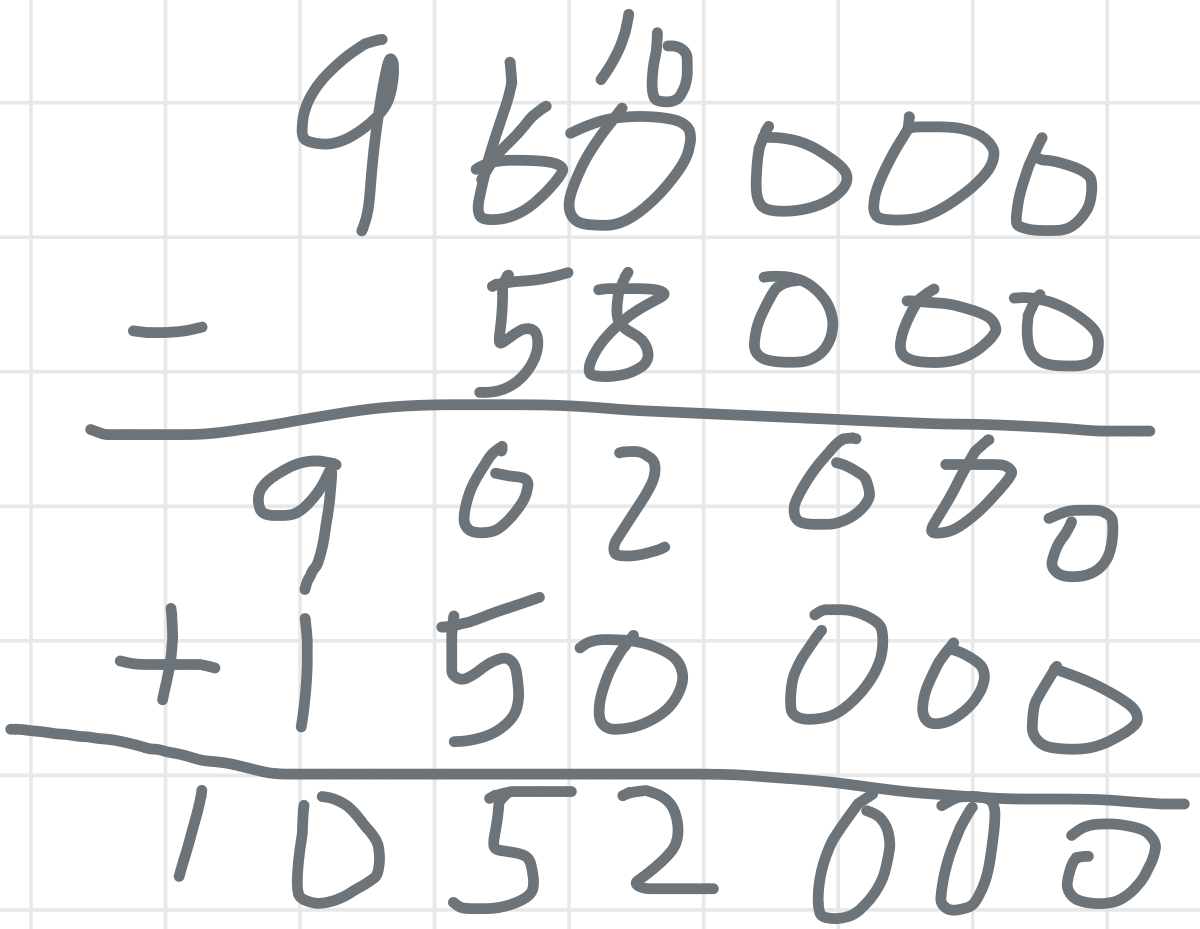 10
960000
- 58000
902000
+ 150000
1052000